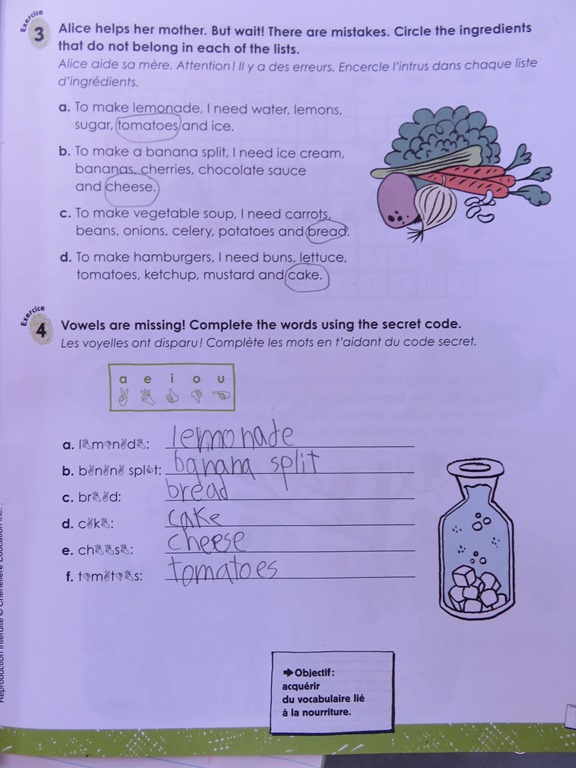 Exercice
3 Alice helps her mother. But wait! There are mistakes. Circle the ingredients
that do not belong in each of the lists.
Alice aide sa mère. Attention! Il y a des erreurs. Encercle l'intrus dans chaque liste
d'ingrédients.
a. To make lemonade, I need water, lemons,
sugar, tomatoes and ice.
b. To make a banana split, I need ice cream,
bananas, cherries, chocolate sauce
and cheese.
c. To make vegetable soup, I need carrots,
beans, onions, celery, potatoes and bread.
d. To make hamburgers, I need buns, lettuce,
tomatoes, ketchup, mustard and cake.
Exercice
4 Vowels are missing! Complete the words using the secret code.
Les voyelles ont disparu! Complète les mots en t'aidant du code secret.
a e i o u
a. l m n d : lemonade
b. b n n spl t: banana split
c. br d: bread
d. c k : cake
e. ch s : cheese
f. t m t s: tomatoes
➔ Objectif :
acquérir
du vocabulaire lié
à la nourriture.